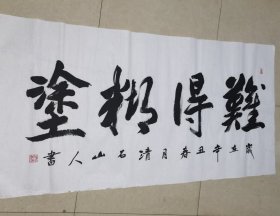 難得糊塗
歲在辛丑春月清石山人書